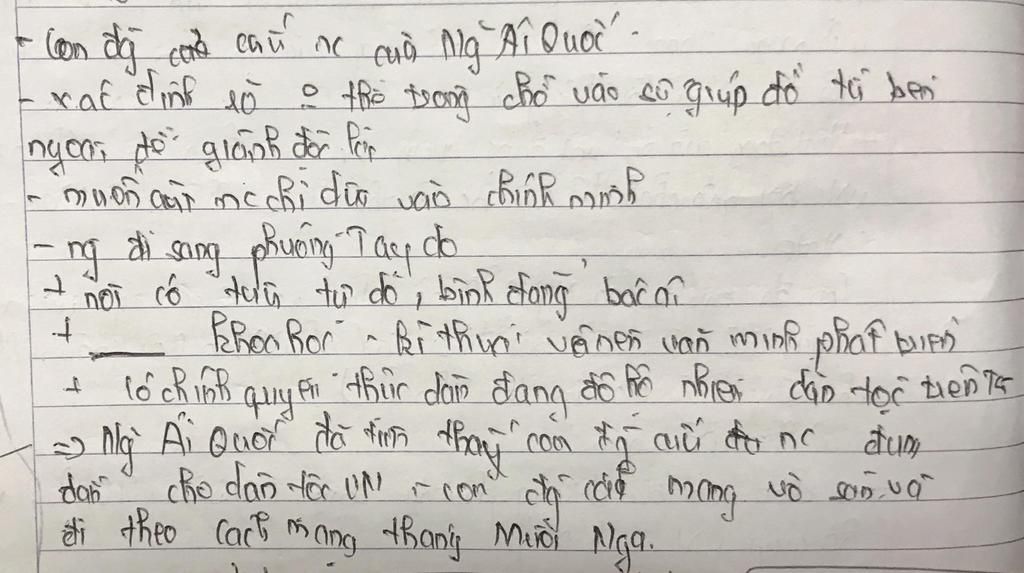 - Con đg cứu nc của Ng~ Ái Quốc.
- xác định rõ: o thể trông chờ vào sự giúp đỡ từ bên
ngoài để giành độc lập
- muốn cứu nc chỉ dựa vào chính mình
- ng đi sang phương Tây do
+ nơi có tư tự do, bình đẳng bác ái
+ ___ khoa học - kĩ thuật và nền văn minh phát triển
+ có chính quyền thực dân đang đô hộ nhiều dân tộc trên TG
=> Ng~ Ái Quốc đã tìm thấy con đg cứu nc đúng
đắn cho dân tộc VN - con đg cách mạng vô sản và
đi theo cách mạng tháng Mười Nga.